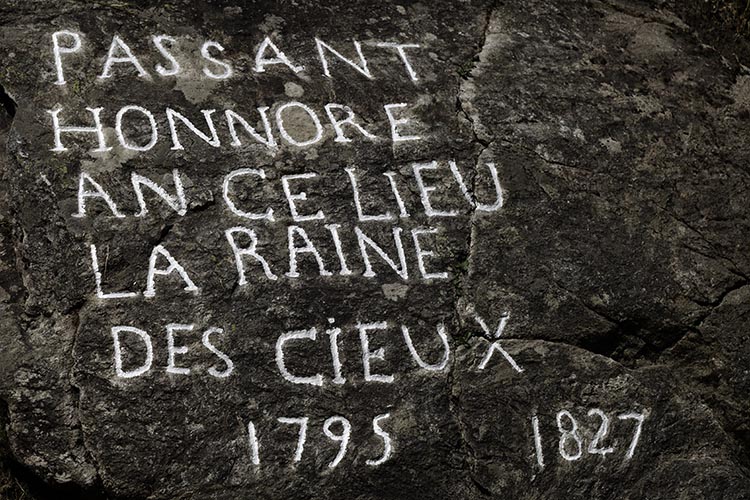 PASSANT
HONNORE
AN CE LIEU
LA RAINE
DES CIEUX
1795 1827